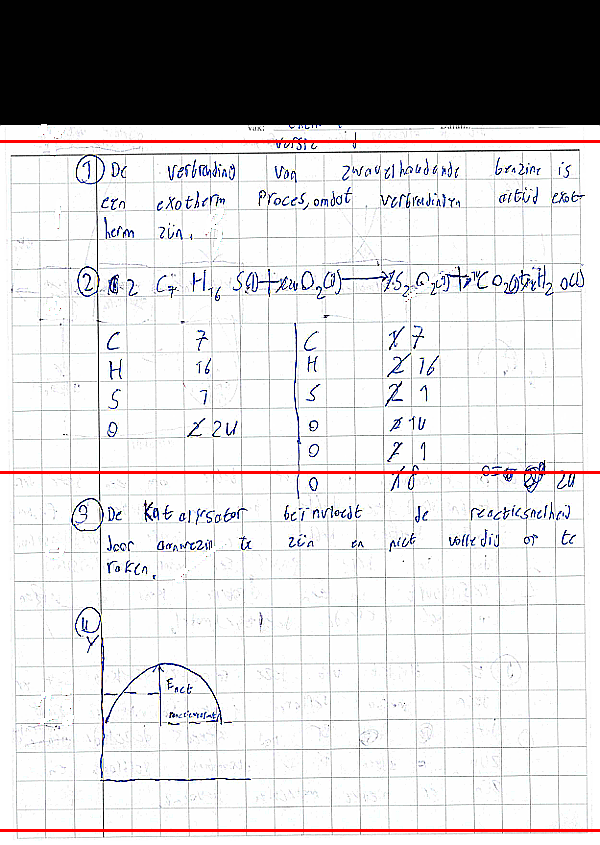 vak:
versie 1
① De verbranding van zwavelhoudende benzine is
een exotherm proces, omdat verbrandingen altijd exot-
herm zijn.
② 2 C7 H16 S(l) + O2(g) → S2 O2(g) + CO2(g) + H2O(l)
C 7 C 7
H 16 H 16
S 1 S 1
O 24 O 14
O 1
O 8 24
③ De Katalysator beïnvloedt de reactiesnelheid
door aanwezig te zijn en niet volledig op te
raken.
④
Y
Eact